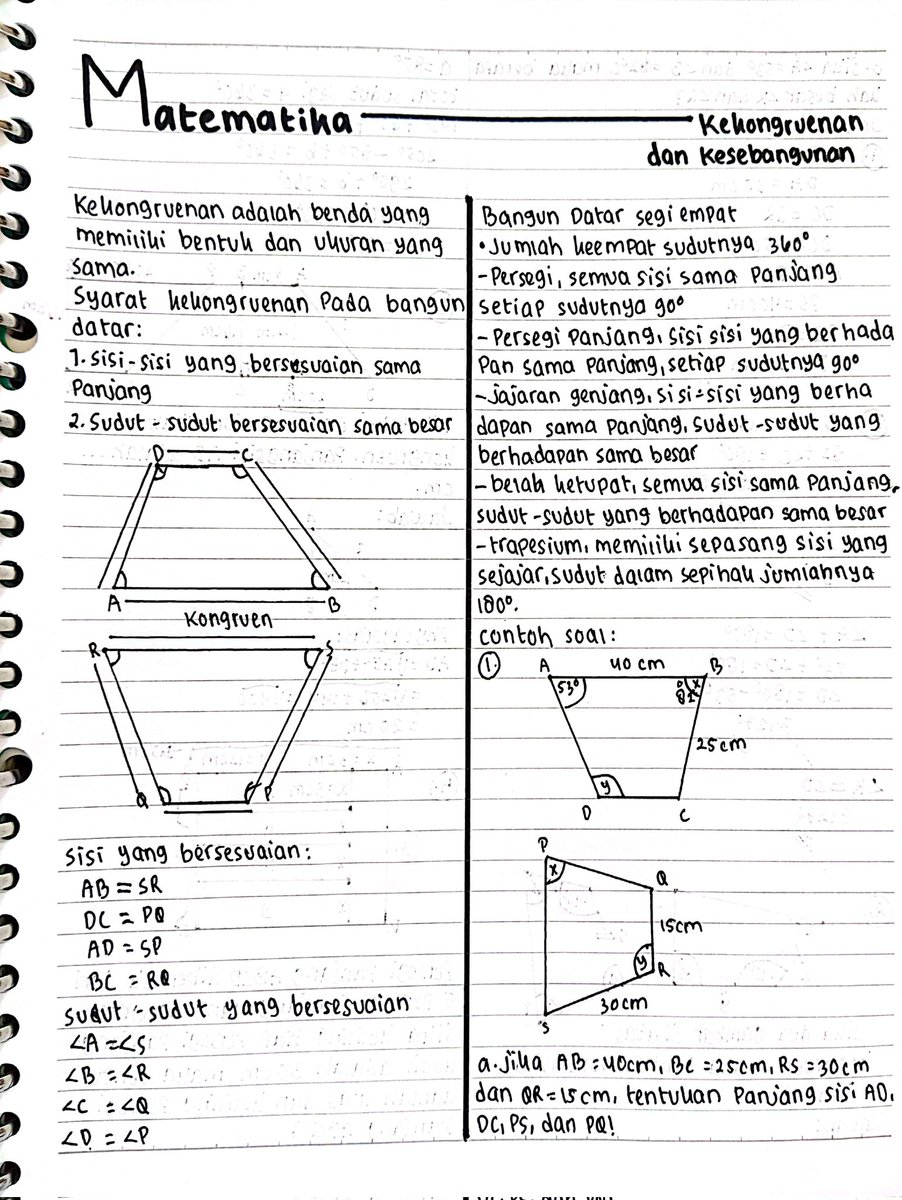 Matematika
Kekongruenan
dan Kesebangunan
Kekongruenan adalah benda yang
memiliki bentuk dan ukuran yang
sama.
Syarat kekongruenan Pada bangun
datar:
1. Sisi-sisi yang bersesuaian sama
Panjang
2. Sudut-sudut bersesuaian sama besar
D C
A B
Kongruen
R S
Q P
Sisi yang bersesuaian:
AB = SR
DC = PQ
AD = SP
BC = RQ
Sudut-sudut yang bersesuaian
∠A = ∠S
∠B = ∠R
∠C = ∠Q
∠D = ∠P
Bangun Datar segi empat
• Jumlah keempat sudutnya 360°
- Persegi, semua sisi sama Panjang
setiap sudutnya 90°
- Persegi Panjang, sisi sisi yang berhada
Pan sama Panjang, setiap sudutnya 90°
- Jajaran genjang, sisi-sisi yang berha
dapan sama Panjang, sudut-sudut yang
berhadapan sama besar
- belah ketupat, semua sisi sama Panjang,
sudut-sudut yang berhadapan sama besar
- trapesium, memiliki sepasang sisi yang
sejajar, sudut dalam sepihak jumlahnya
180°.
contoh soal:
1. A 40 cm B
53° x
25cm
y
D C
P
x Q
15cm
y R
30cm
S
a. Jika AB = 40cm, BC = 25cm, RS = 30cm
dan QR = 15cm, tentukan Panjang sisi AD,
DC, PS, dan PQ!